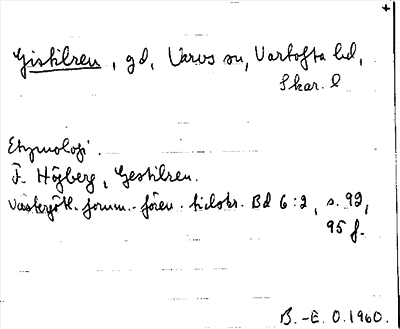 +
Gistilren, gd, Varvs sn, Vartofta hd,
Skar. l
Etymologi.
F. Högberg, Gestilren.
Västergötl. fornm.-fören. tidskr. Bd 6:2, s. 93,
95 f.
B.-E. O. 1960.